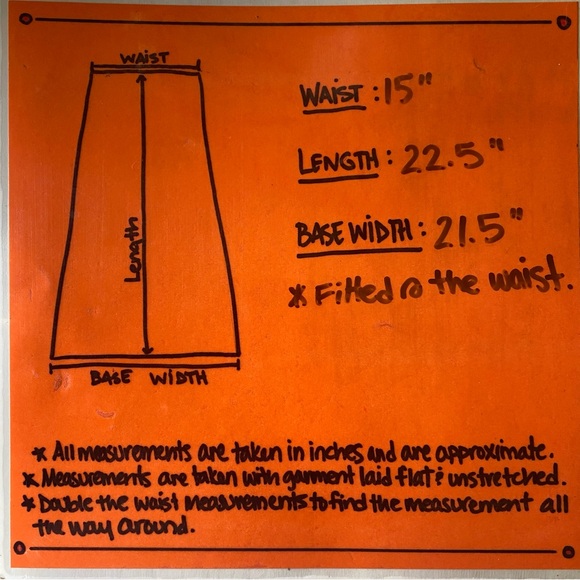 WAIST
WAIST : 15"
LENGTH : 22.5"
Length
BASE WIDTH : 21.5"
* Fitted @ the waist.
BASE WIDTH
* All measurements are taken in inches and are approximate.
* Measurements are taken with garment laid flat & unstretched.
* Double the waist measurements to find the measurement all
the way around.